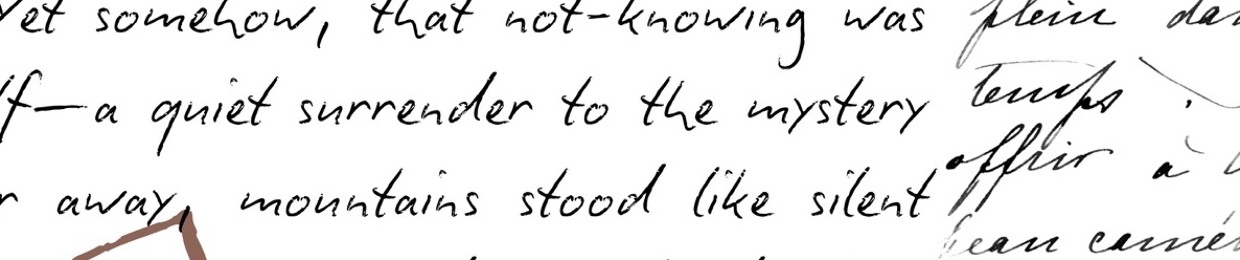 Yet somehow, that not-knowing was
f—a quiet surrender to the mystery
r away, mountains stood like silent
plein
temps
offrir à
beau